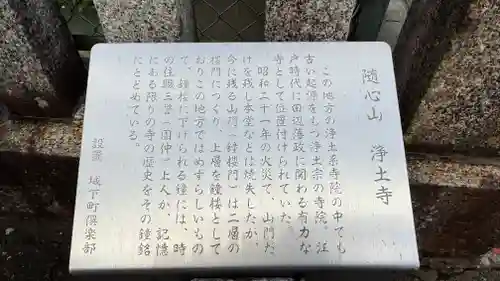 随心山　浄土寺
この地方の浄土系寺院の中でも
古い起源をもつ浄土宗の寺院。江
戸時代に田辺藩政に関わる有力な
寺として位置付けられていた。
昭和二十一年の火災で、山門だ
けを残し本堂などは焼失したが、
今に残る山門（鐘楼門）は二層の
楼門につくり、上層を鐘楼として
おりこの地方ではめずらしいもの
で、鐘楼に下げられる鐘には、時
の住職三空（国仲）上人が、記憶
にある限りの寺の歴史をその鐘銘
にとどめている。
設置　城下町倶楽部